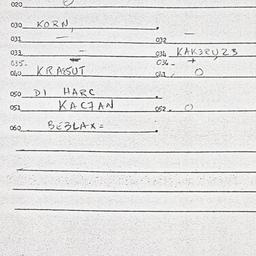 020
030 KORN,
031 — 032 —
033 — 034
035- 036-
040 041 O
050 DI HARC
051 KACZAN 052. O
060 BEBLAX=